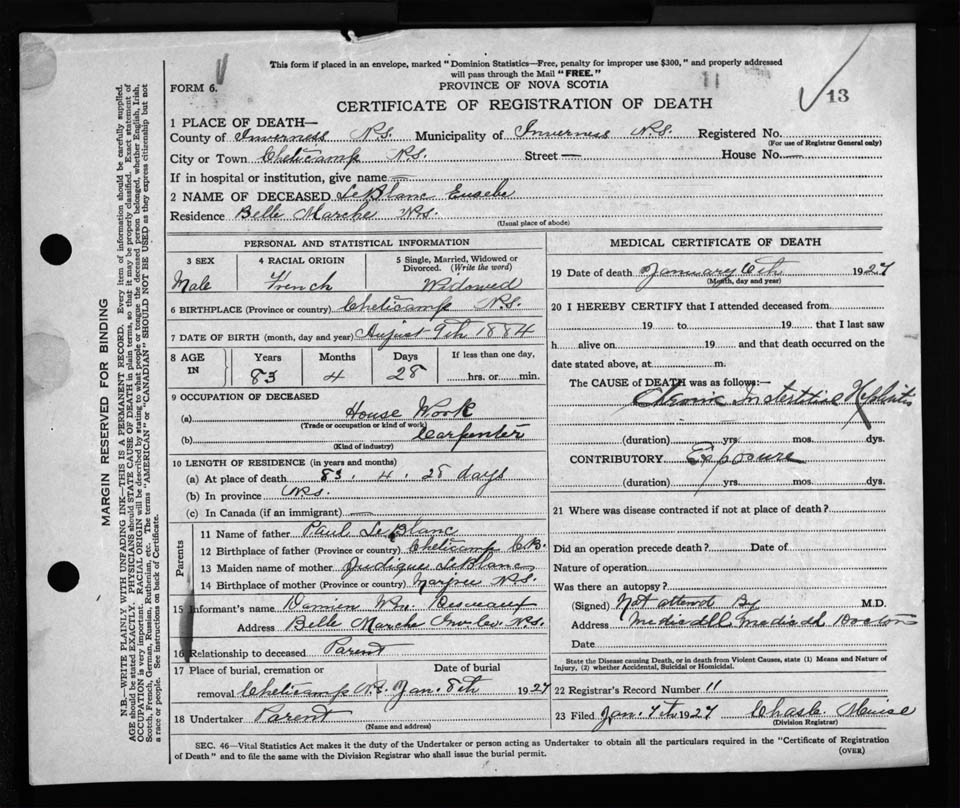 This form if placed in an envelope, marked "Dominion Statistics—Free, penalty for improper use $300," and properly addressed
will pass through the Mail "FREE."
FORM 6.
PROVINCE OF NOVA SCOTIA
11
13
CERTIFICATE OF REGISTRATION OF DEATH
1 PLACE OF DEATH—
County of Inverness N.S. Municipality of Inverness N.S. Registered No.
(For use of Registrar General only)
City or Town Cheticamp N.S. Street — House No. —
If in hospital or institution, give name —
2 NAME OF DECEASED LeBlanc Eusebe
Residence Belle Marche N.S.
(Usual place of abode)
PERSONAL AND STATISTICAL INFORMATION
3 SEX 4 RACIAL ORIGIN 5 Single, Married, Widowed or
Divorced. (Write the word)
Male French Widowed
6 BIRTHPLACE (Province or country) Cheticamp N.S.
7 DATE OF BIRTH (month, day and year) August 9th 1884
8 AGE IN Years Months Days If less than one day,
83 4 28 hrs. or min.
9 OCCUPATION OF DECEASED
(a) House Work
(Trade or occupation or kind of work)
(b) Carpenter
(Kind of industry)
10 LENGTH OF RESIDENCE (in years and months)
(a) At place of death 83. 4. 28 days
(b) In province N.S.
(c) In Canada (if an immigrant) —
Parents
11 Name of father Paul LeBlanc
12 Birthplace of father (Province or country) Cheticamp C.B.
13 Maiden name of mother Judique LeBlanc
14 Birthplace of mother (Province or country) N.S.
15 Informant's name Damien Wm. Desveaux
Address Belle Marche N.S.
16 Relationship to deceased Parent
17 Place of burial, cremation or Date of burial
removal Cheticamp N.S. Jan. 8th 1927
18 Undertaker Parent
(Name and address)
MEDICAL CERTIFICATE OF DEATH
19 Date of death January 6th 1927
(Month, day and year)
20 I HEREBY CERTIFY that I attended deceased from
19 to 19 that I last saw
h alive on 19 and that death occurred on the
date stated above, at m.
The CAUSE of DEATH was as follows:—
Chronic Insterttial Nephritis
(duration) yrs. mos. dys.
CONTRIBUTORY Exposure
(duration) yrs. mos. dys.
21 Where was disease contracted if not at place of death?
Did an operation precede death? Date of
Nature of operation
Was there an autopsy?
(Signed) Not attend By M.D.
Address Medicall Doctors
Date
State the Disease causing Death, or in death from Violent Causes, state (1) Means and Nature of
Injury, (2) whether Accidental, Suicidal or Homicidal.
22 Registrar's Record Number 11
23 Filed Jan. 7th 1927
(Division Registrar)
SEC. 46—Vital Statistics Act makes it the duty of the Undertaker or person acting as Undertaker to obtain all the particulars required in the "Certificate of Registration
of Death" and to file the same with the Division Registrar who shall issue the burial permit.
(OVER)
MARGIN RESERVED FOR BINDING
N.B.—WRITE PLAINLY WITH UNFADING INK—THIS IS A PERMANENT RECORD. Every item of information should be carefully supplied.
AGE should be stated EXACTLY. PHYSICIANS should STATE CAUSE OF DEATH in plain terms, so that it may be properly classified. Exact statement of
OCCUPATION is very important. RACIAL ORIGIN will be described by stating to what people or tongue the deceased person belonged, whether English, Irish,
Scotch, French, German, Russian, Ruthenian, etc. The terms "AMERICAN" or "CANADIAN" SHOULD NOT BE USED as they express citizenship but not
a race or people. See instructions on back of Certificate.